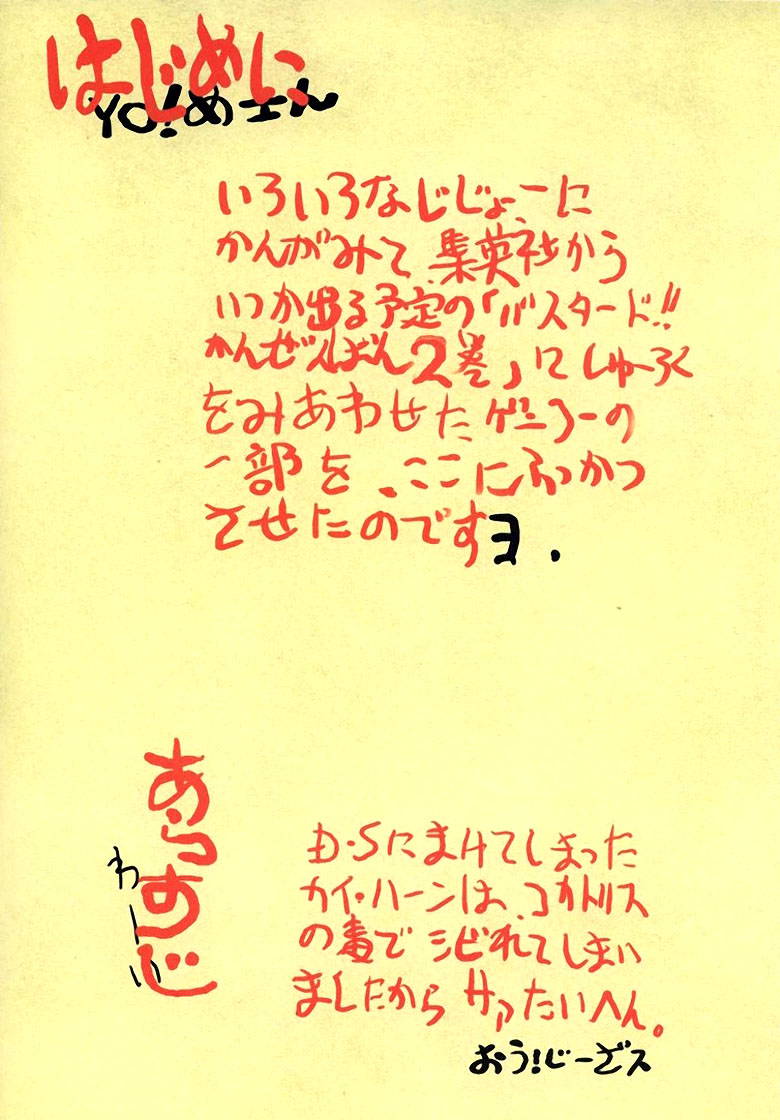 はじめに
YO!めさん
いろいろなじじょーに
かんがみて、集英社から
いつか出る予定の「バスタード!!
かんぜんばん2巻」にしゅーろく
をみあわせたゲンコーの
一部を、ここにふっかつ
させたのですヨ.
あらすじ
わーい
D・Sにまけてしまった
カイ・ハーンは、コカトリス
の毒でシビれてしまい
ましたからサァたいへん。
おう!じーざス